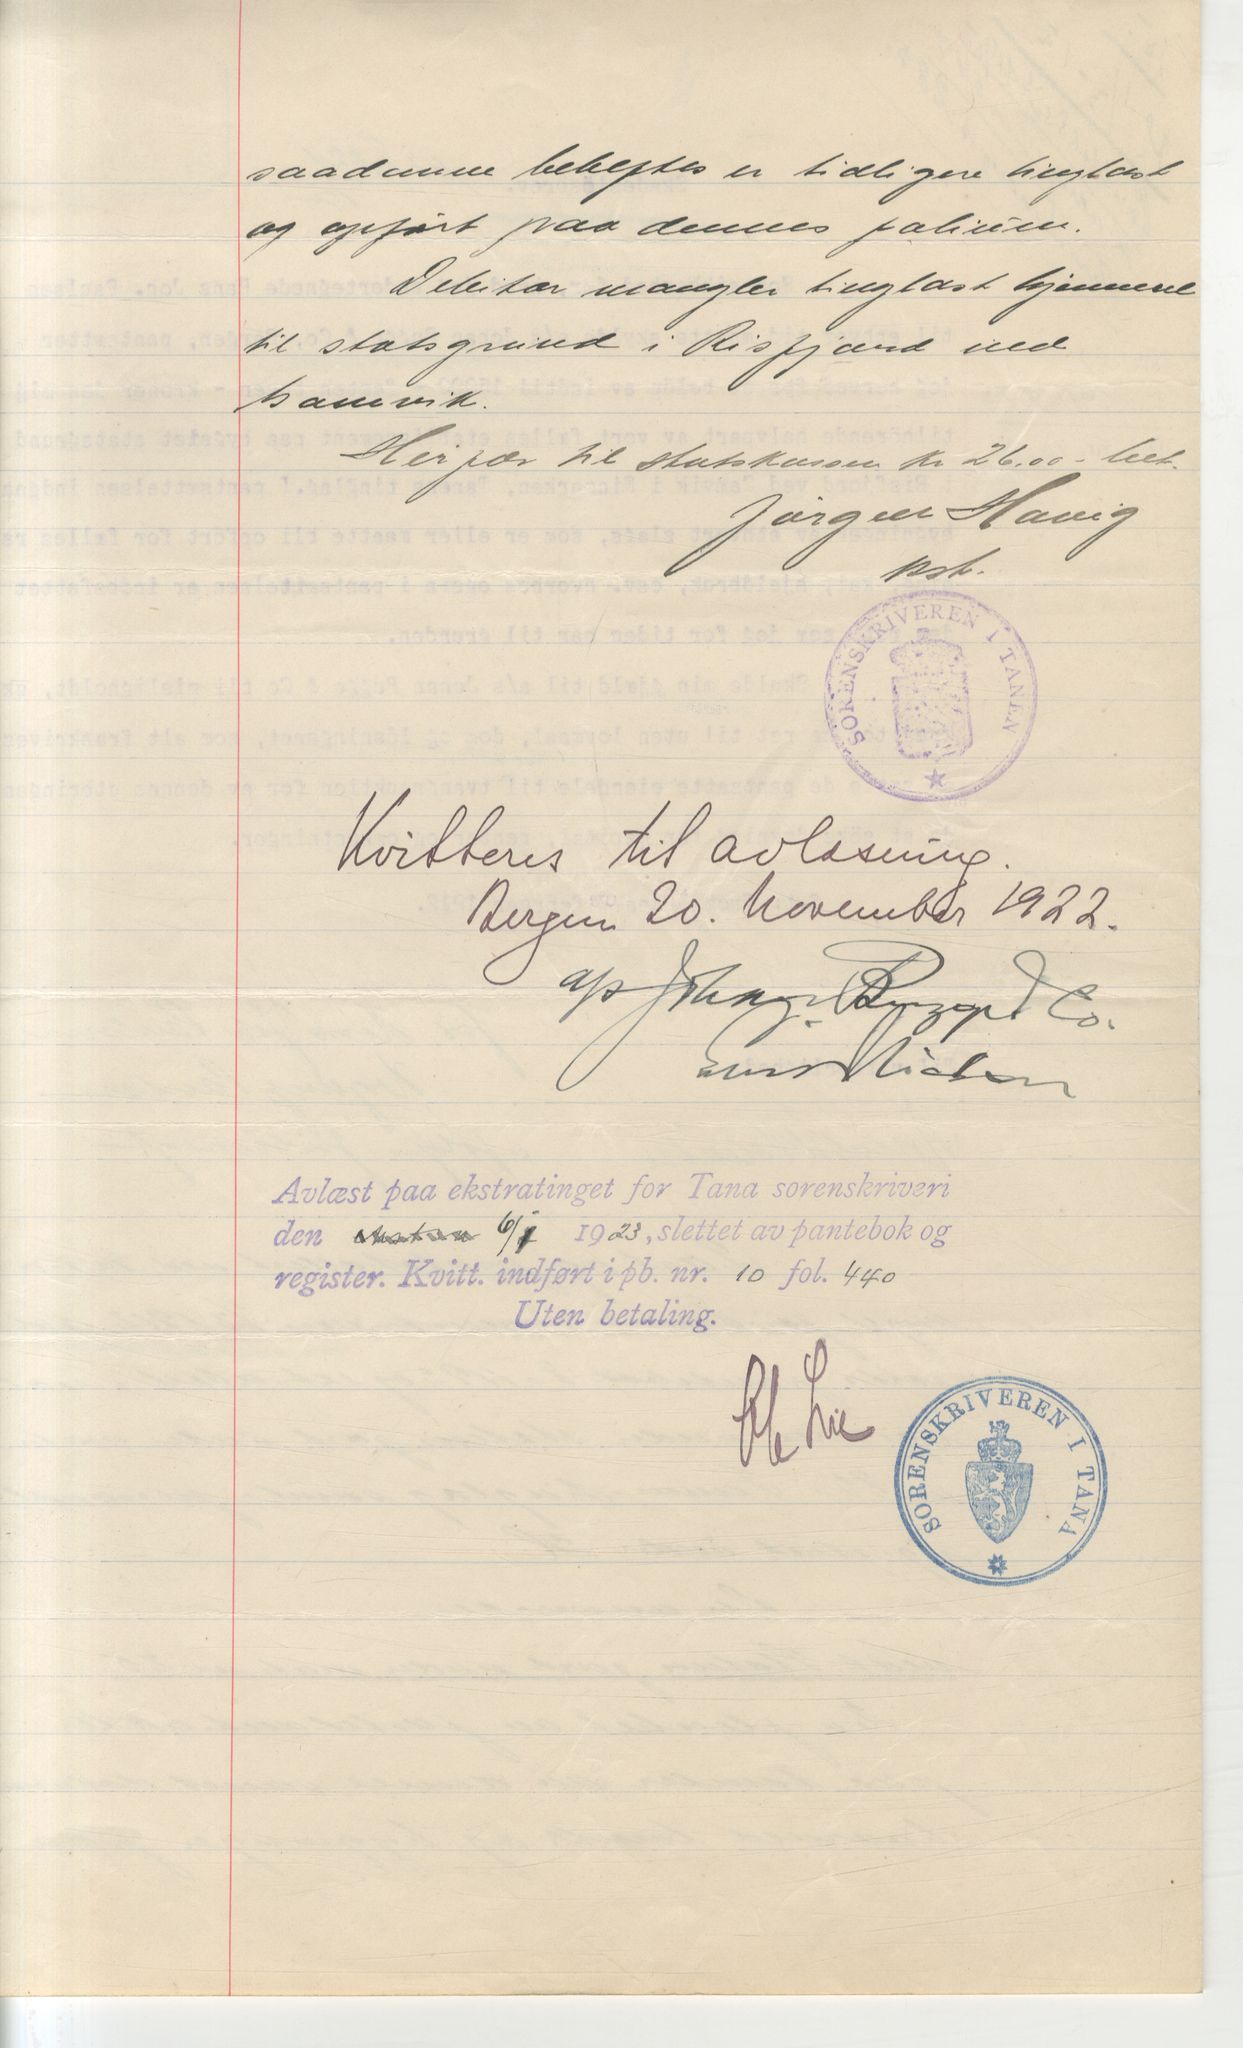 saadanne beheftes er tidligere tinglæst
og opført paa dennes folium.
Debitor mangler tinglæst hjemmel
til statsgrund i Risfjord ved
Samvik.
Herfor til statskassen kr 26.00 - bet.
Jørgen Havig
kst.
SORENSKRIVEREN I TANEN
Kvitteres til avlæsning.
Bergen 20. November 1922.
a/s & Co.
Avlæst paa ekstratinget for Tana sorenskriveri
den 6/1 1923, slettet av pantebok og
register. Kvitt. indført i pb. nr. 10 fol. 440
Uten betaling.
Lie
SORENSKRIVEREN I TANA